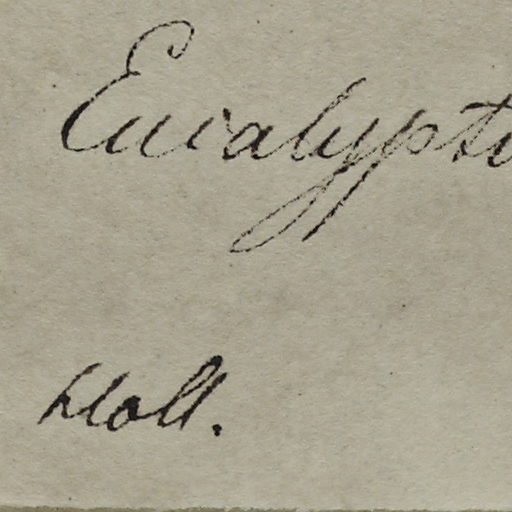 Eucalyptu
Holl.